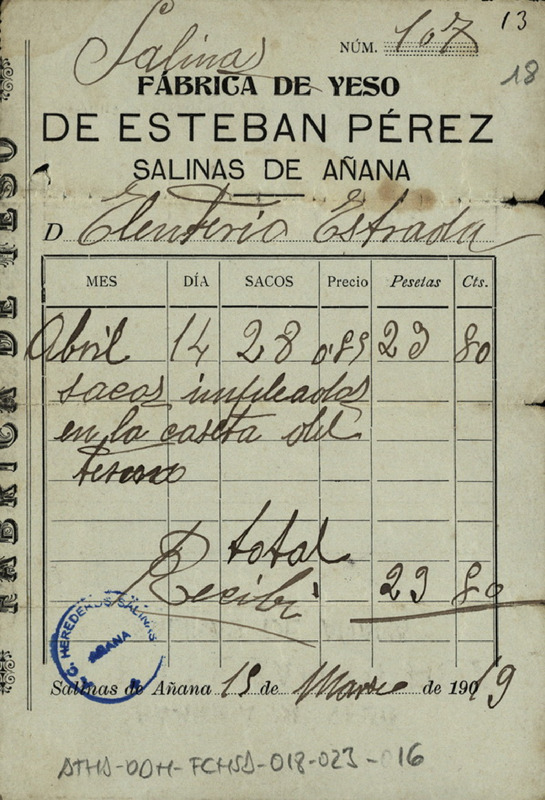 13
Salinas
NÚM. 167
18
FÁBRICA DE YESO
DE ESTEBAN PÉREZ
SALINAS DE AÑANA
D Eleuterio Estrada
MES DÍA SACOS Precio Pesetas Cts.
Abril 14 28 0'85 23 80
sacos impleados
en la caseta del
total
Recibi 23 80
HEREDEROS SALINAS
AÑANA
Salinas de Añana 15 de Marzo de 1909 19
ATHA-DDH-FCHSA-018-023-016
FABRICA DE YESO